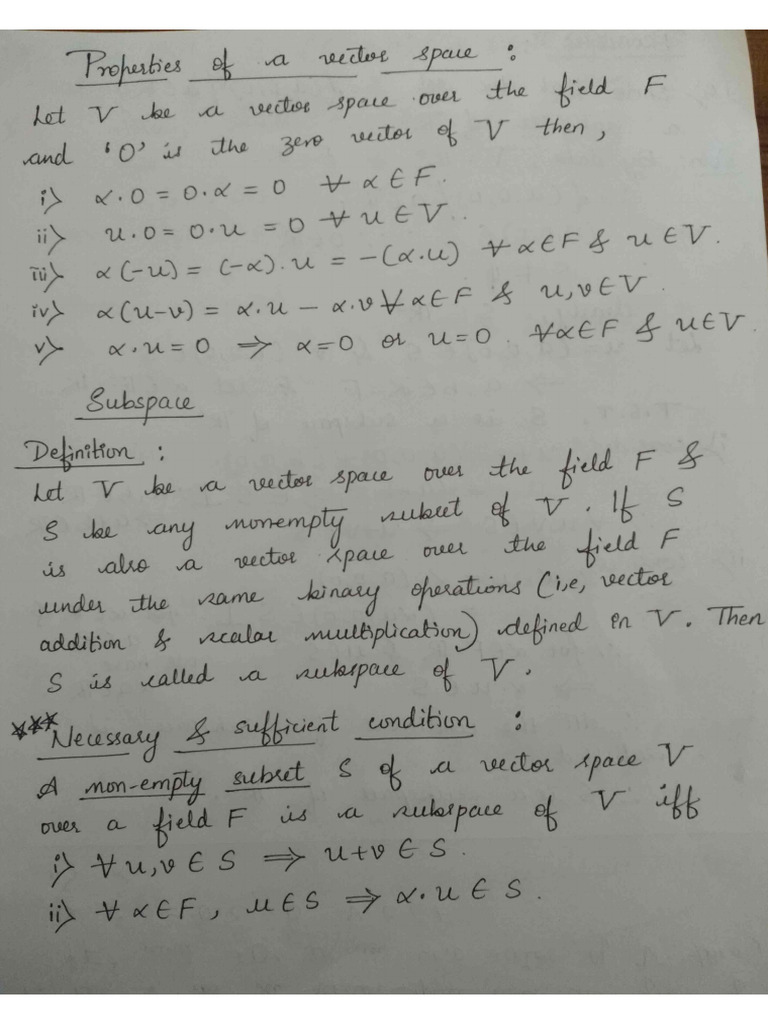 Properties of a vector space :
Let V be a vector space over the field F
and 'O' is the zero vector of V then,
i) α·0 = 0·α = 0 ∀ α∈F.
ii) u·0 = 0·u = 0 ∀ u∈V.
iii) α(-u) = (-α).u = -(α·u) ∀ α∈F & u∈V.
iv) α(u-v) = α·u - α·v ∀ α∈F & u,v∈V
v) α·u=0 ⇒ α=0 or u=0. ∀α∈F & u∈V
Subspace
Definition :
Let V be a vector space over the field F &
S be any nonempty subset of V. If S
is also a vector space over the field F
under the same binary operations (i.e, vector
addition & scalar multiplication) defined in V. Then
S is called a subspace of V.
*** Necessary & sufficient condition :
A non-empty subset S of a vector space V
over a field F is a subspace of V iff
i) ∀ u,v ∈ S ⇒ u+v ∈ S.
ii) ∀ α∈F, u∈S ⇒ α·u ∈ S.